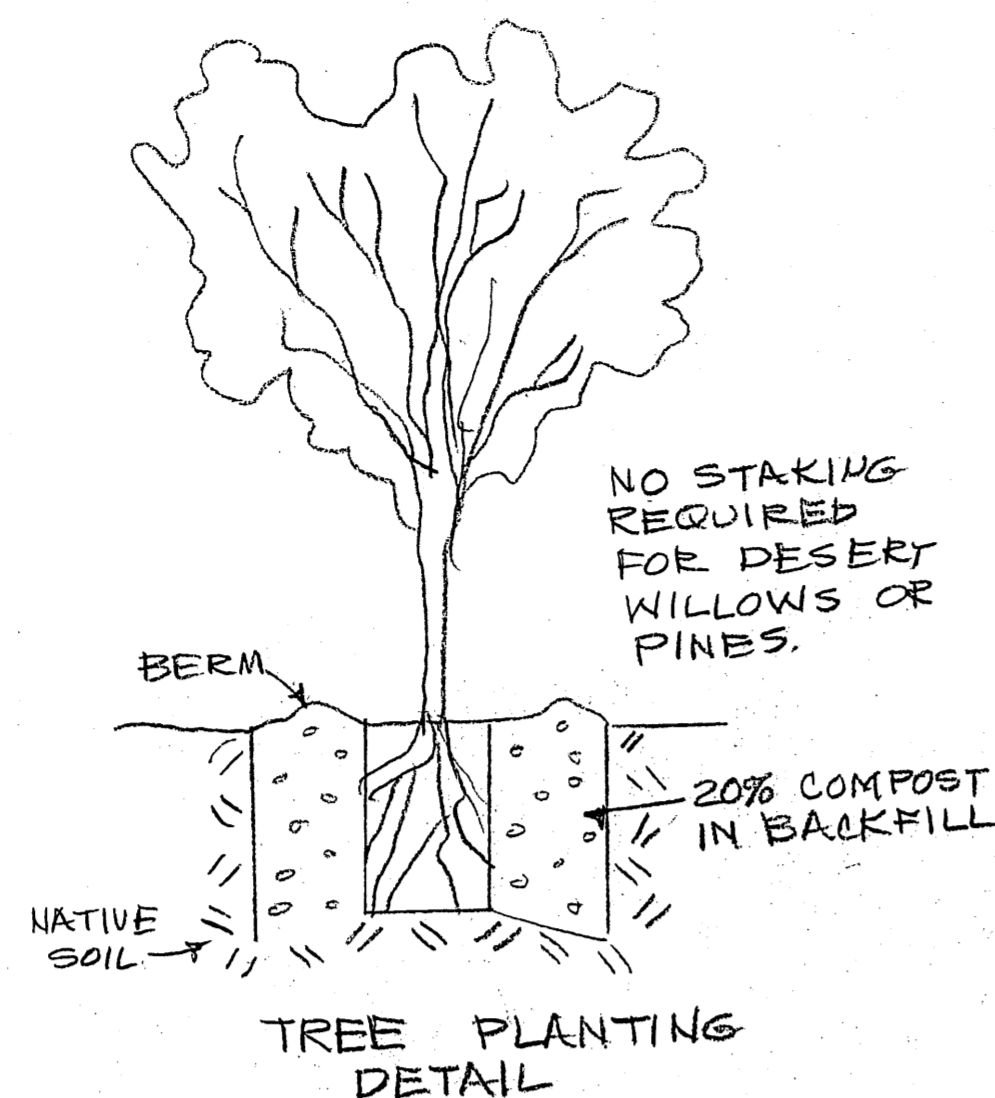 NO STAKING
REQUIRED
FOR DESERT
WILLOWS OR
PINES.
BERM
20% COMPOST
IN BACKFILL
NATIVE
SOIL
TREE PLANTING
DETAIL